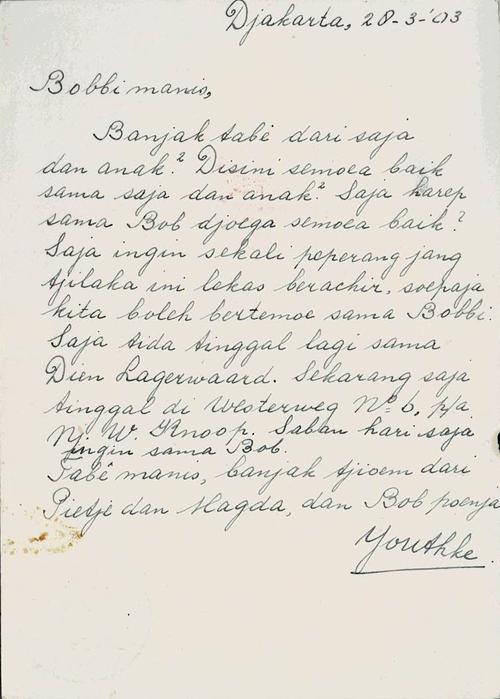 Djakarta, 28-3-'03
Bobbi manis,
Banjak tabê dari saja
dan anak². Disini semoea baik
sama saja dan anak². Saja harep
sama Bob djoega semoea baik².
Saja ingin sekali peperang jang
tjilaka ini lekas berachir, soepaja
kita boleh bertemoe sama Bobbi.
Saja tida tinggal lagi sama
Dien Lagerwaard. Sekarang saja
tinggal di Westerweg No 6, p/a
Nj. W. Knoop. Saban hari saja
ingin sama Bob.
Tabê manis, banjak tjioem dari
Pietje dan Magda, dan Bob poenja
Youthke